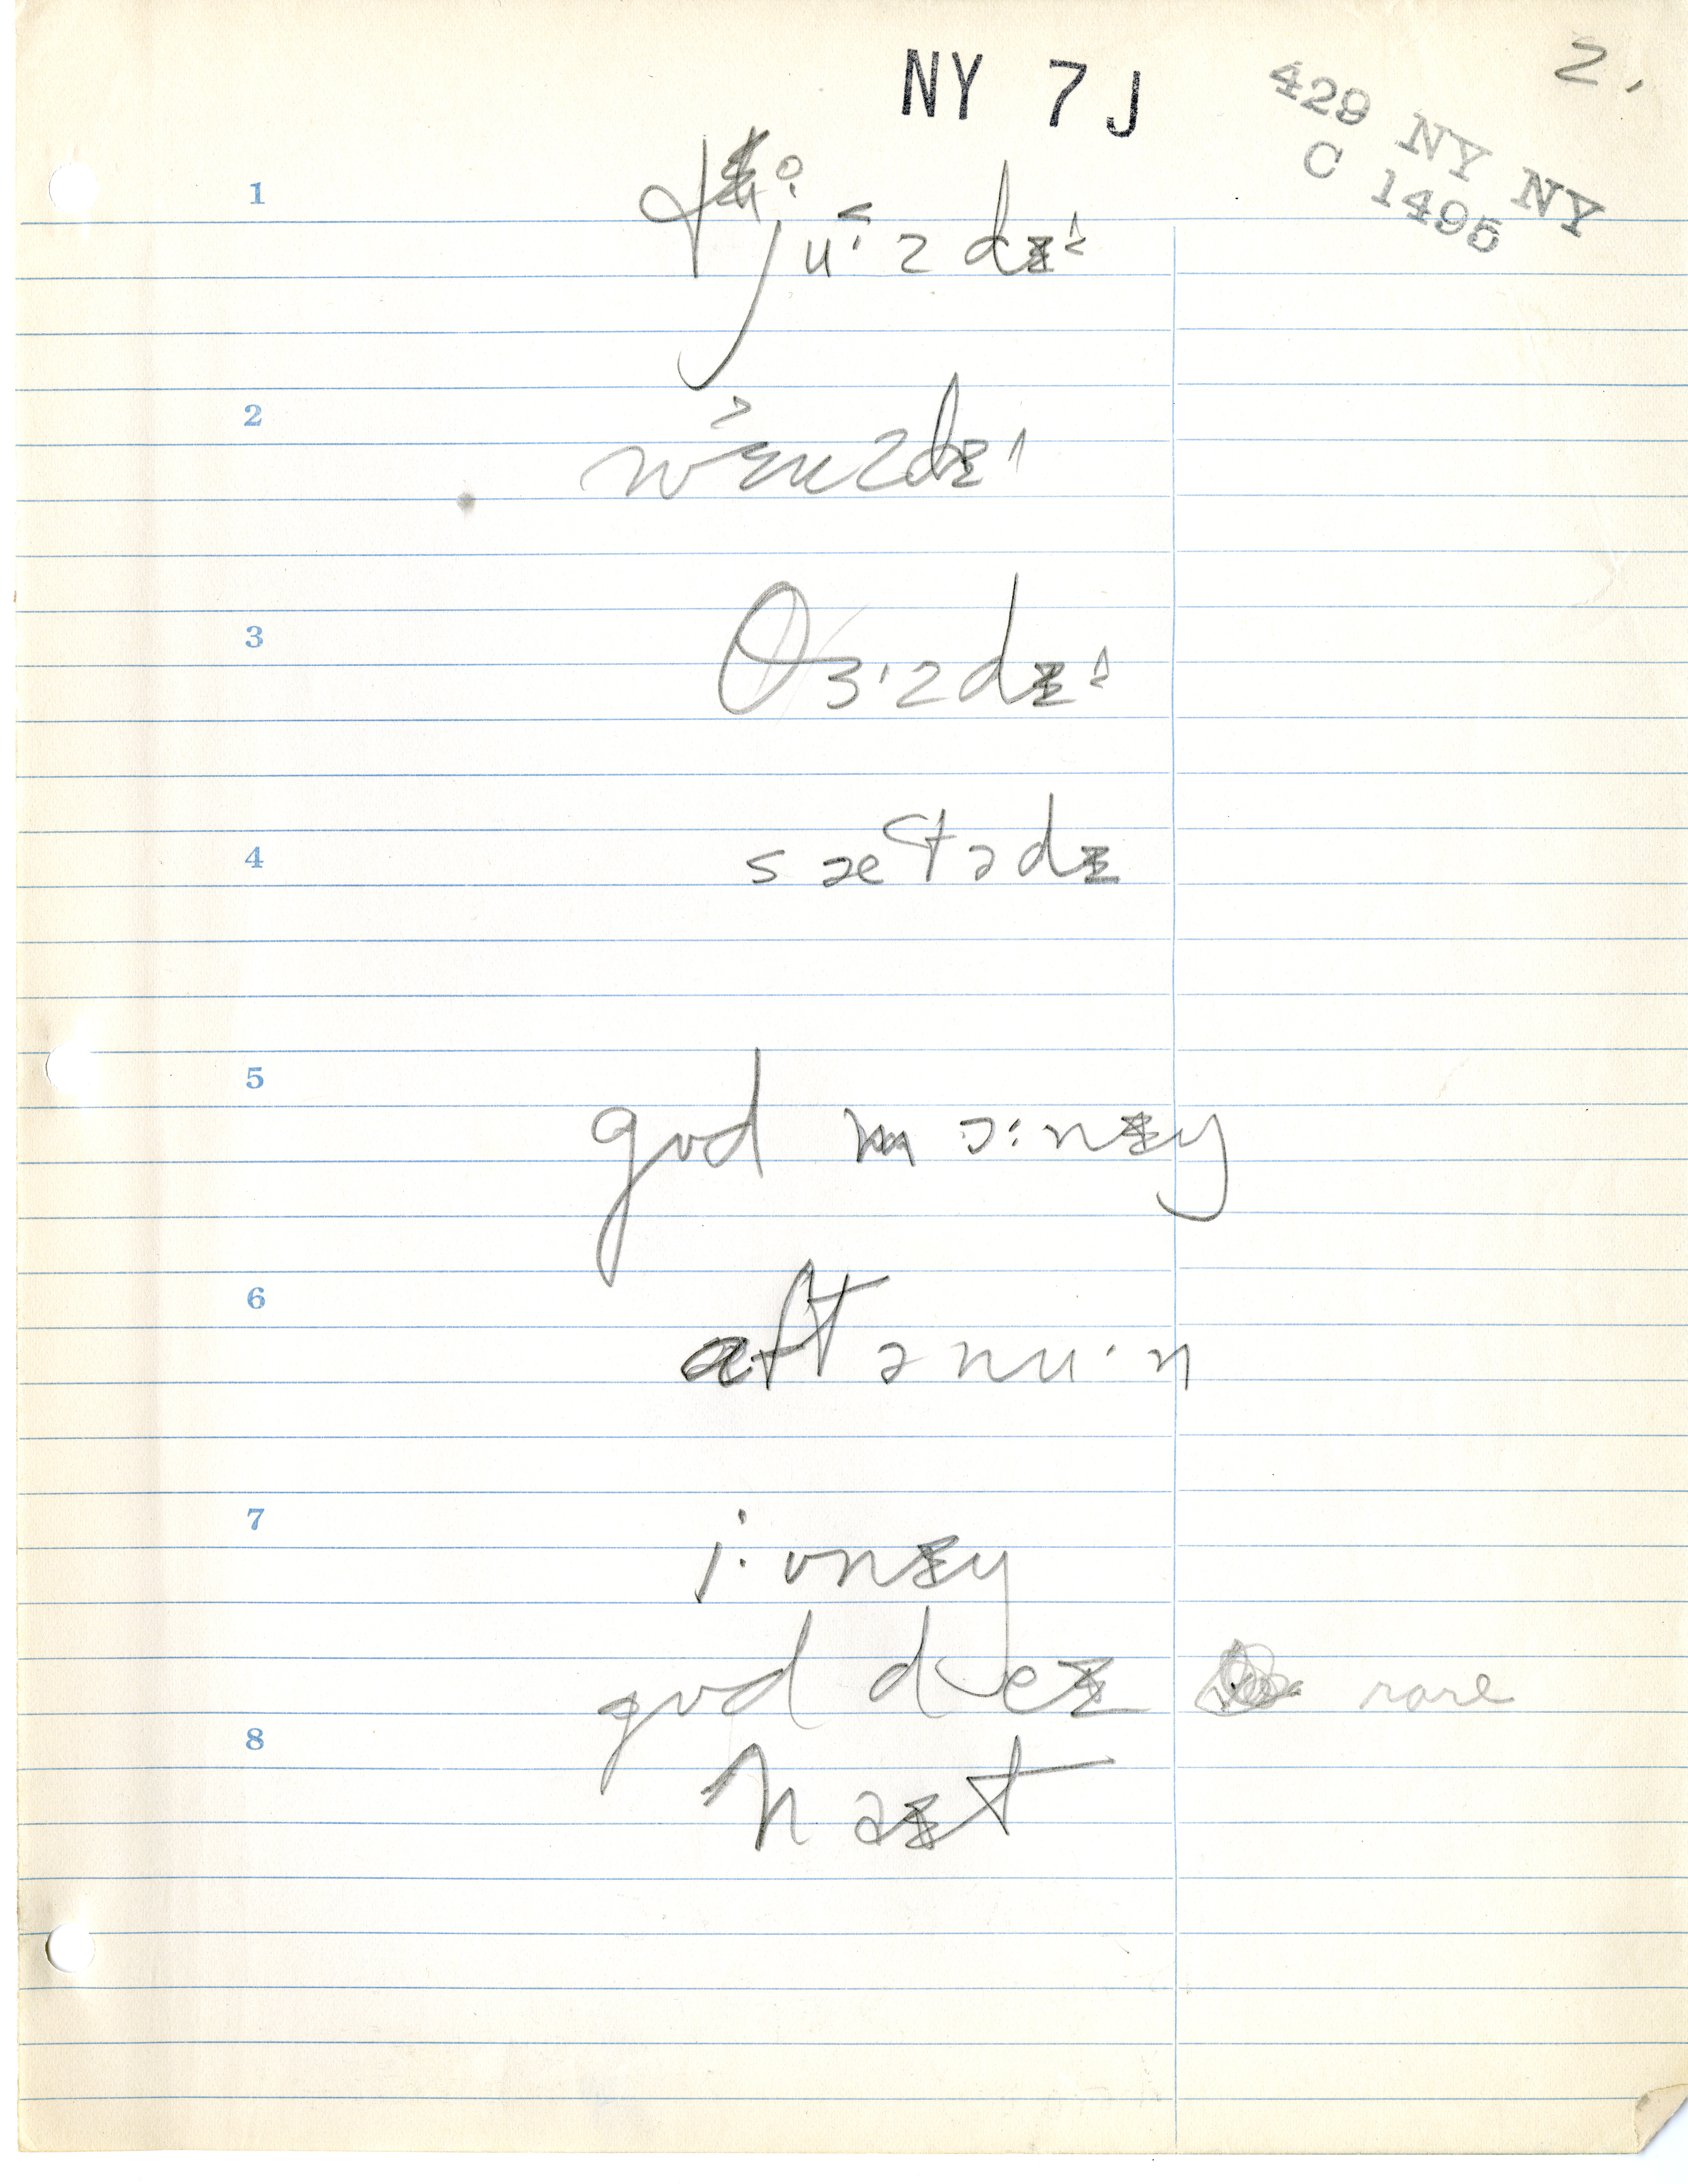 2.
NY 7 J
429 NY NY
C 1495
1
2
3
θɜ·zdɪ
4
sætədɪ
5
gʊd mɔ:nɪŋ
6
æftənu·n
7
i·vnɪŋ
gʊd deɪ rare
8
naɪt